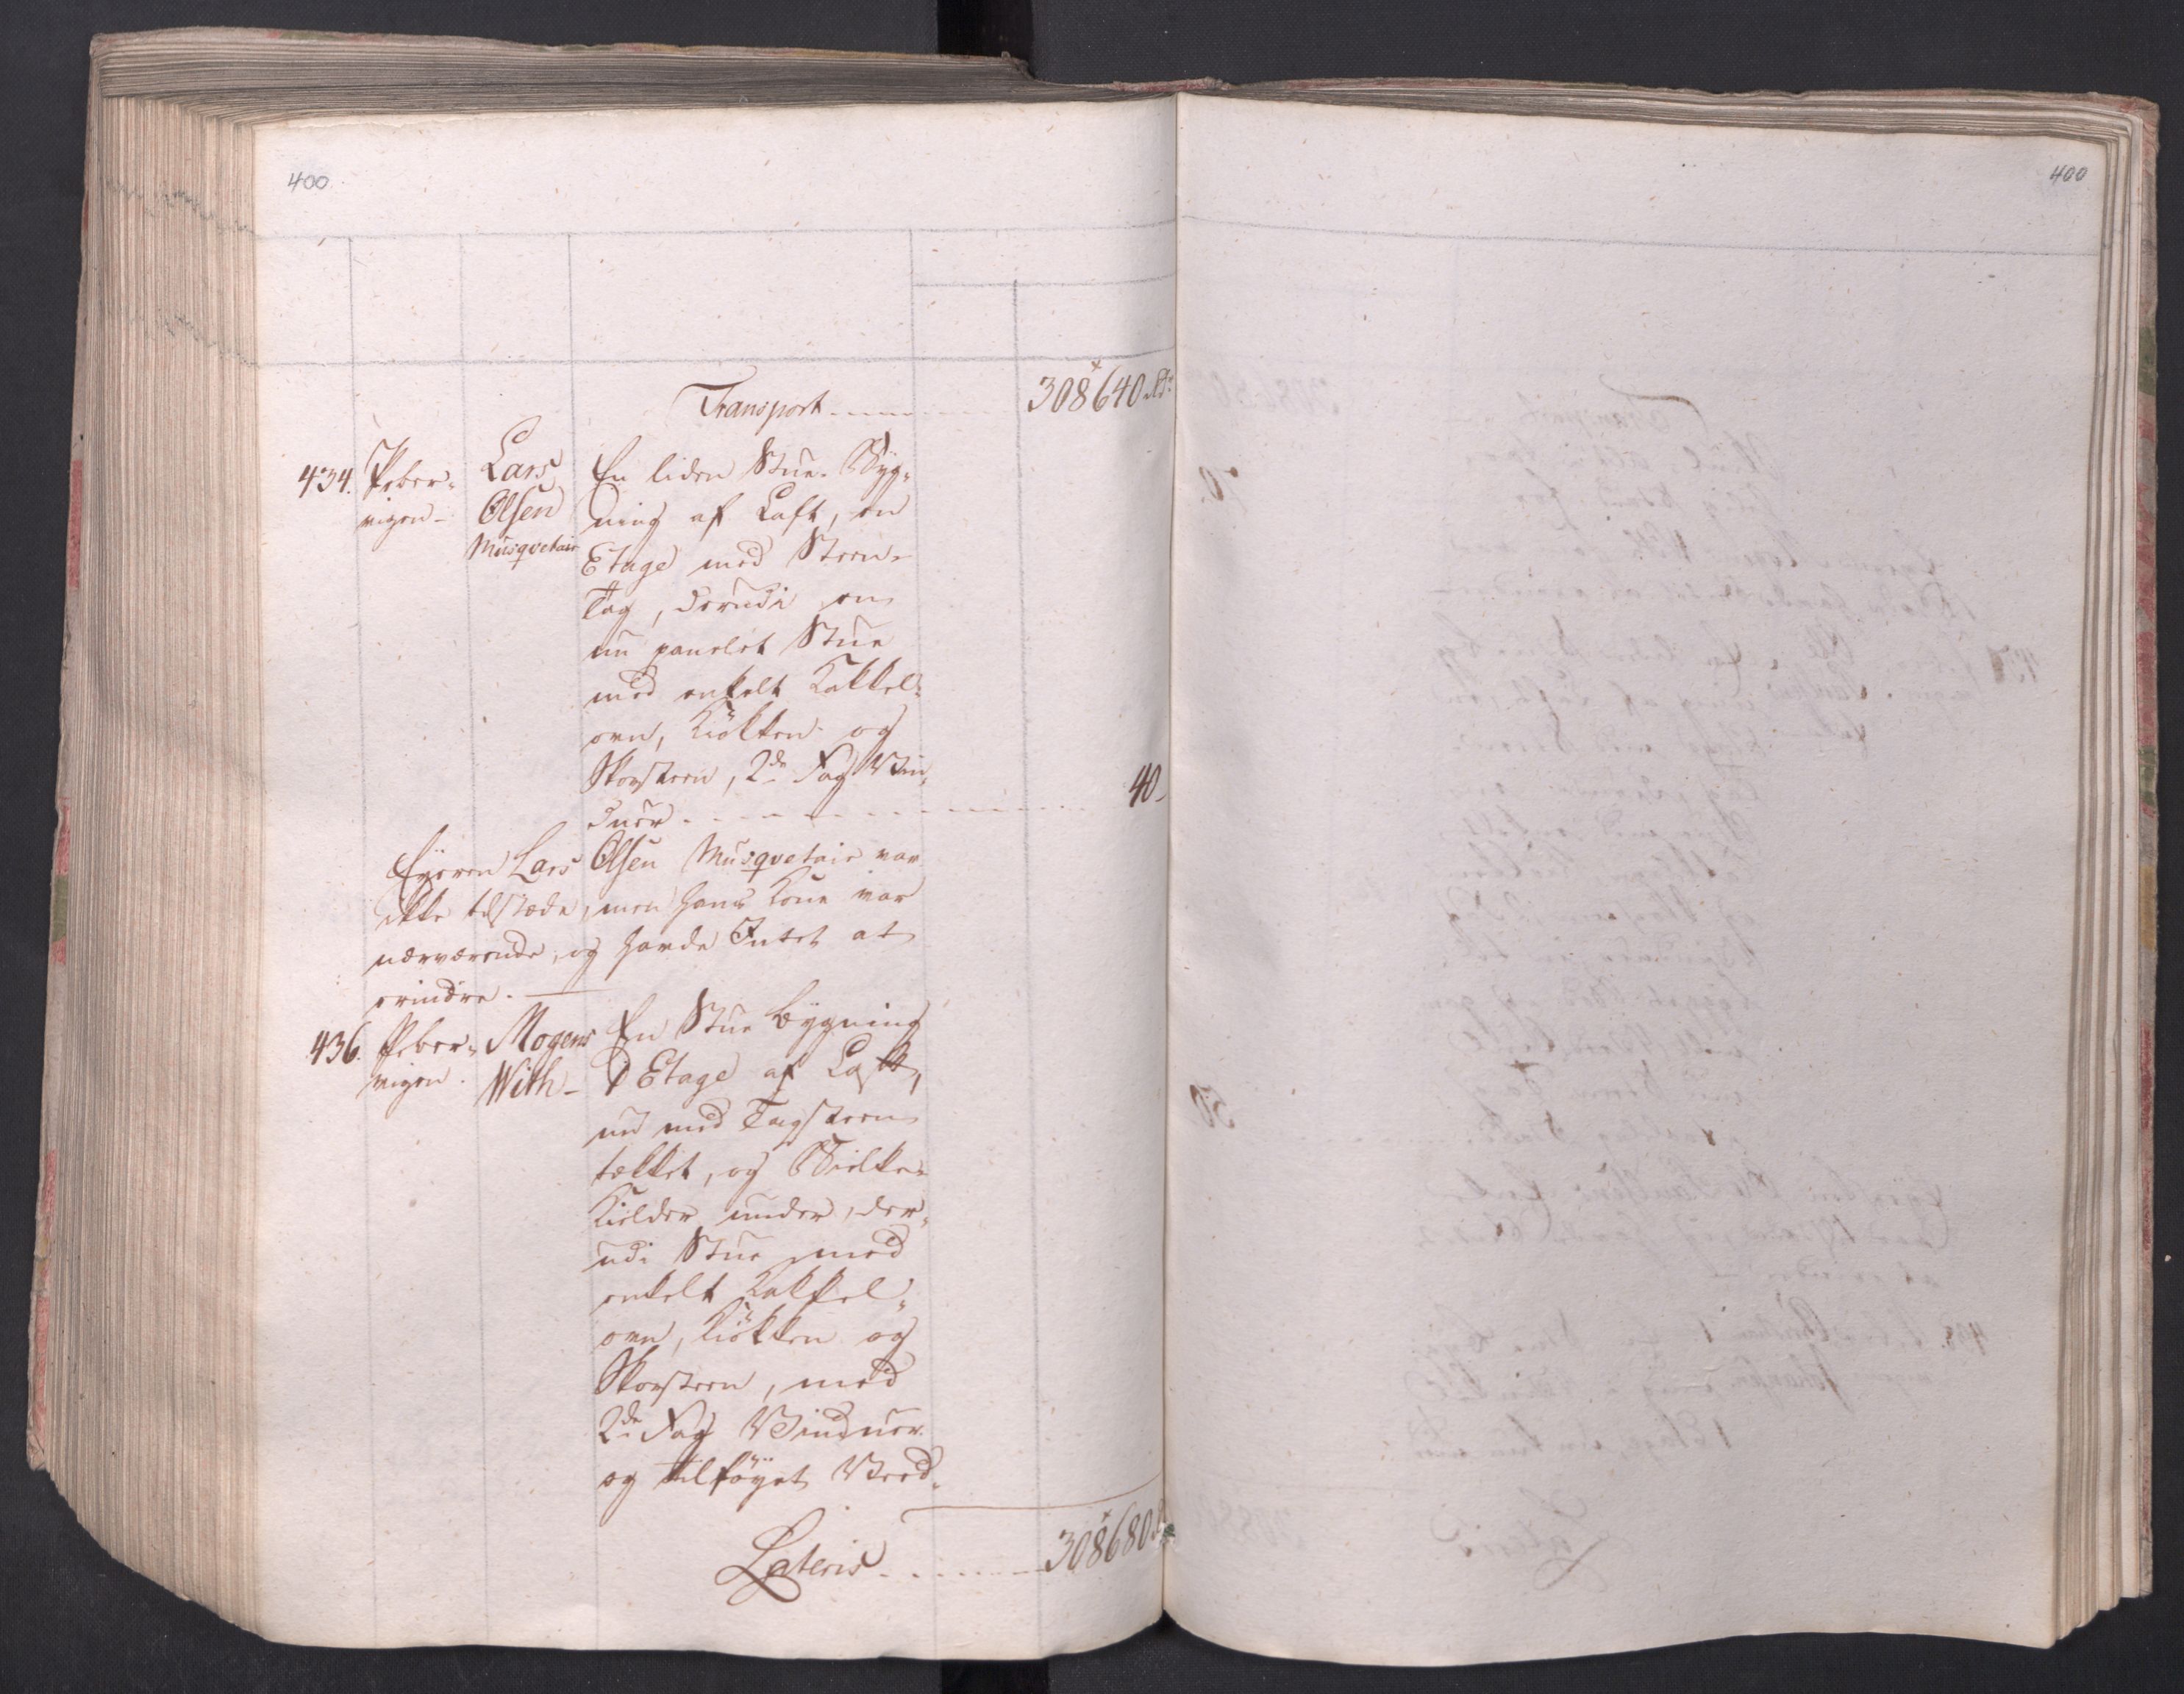 400
Transport 308640 Rd.
434. Peber-
vigen-
Lars
Olsen
Musqvetair
En liden Stue-Byg-
ning af Laft, en
Etage med Steen-
Tag, derudi en
nu panelet Stue
med enkelt Kakkel-
ovn, Kiökken og
Skorsteen, 2de Fag Vin-
duer 40-
Eyeren Lars Olsen Musqvetair var
ikke tilstæde, men hans Kone var
nærværende, og havde Intet at
erindre.
436. Peber-
vigen.
Mogens
With-
En Stue bygning
1 Etage af Laft,
nu med Tagsteen
tækket, og Bielke-
Kielder under, der-
udi Stue med
enkelt Kakkel-
ovn, Kiökken og
Skorsteen, med
2de Fag Vinduer
og tilföyet Veed-
Lateris 308680
400